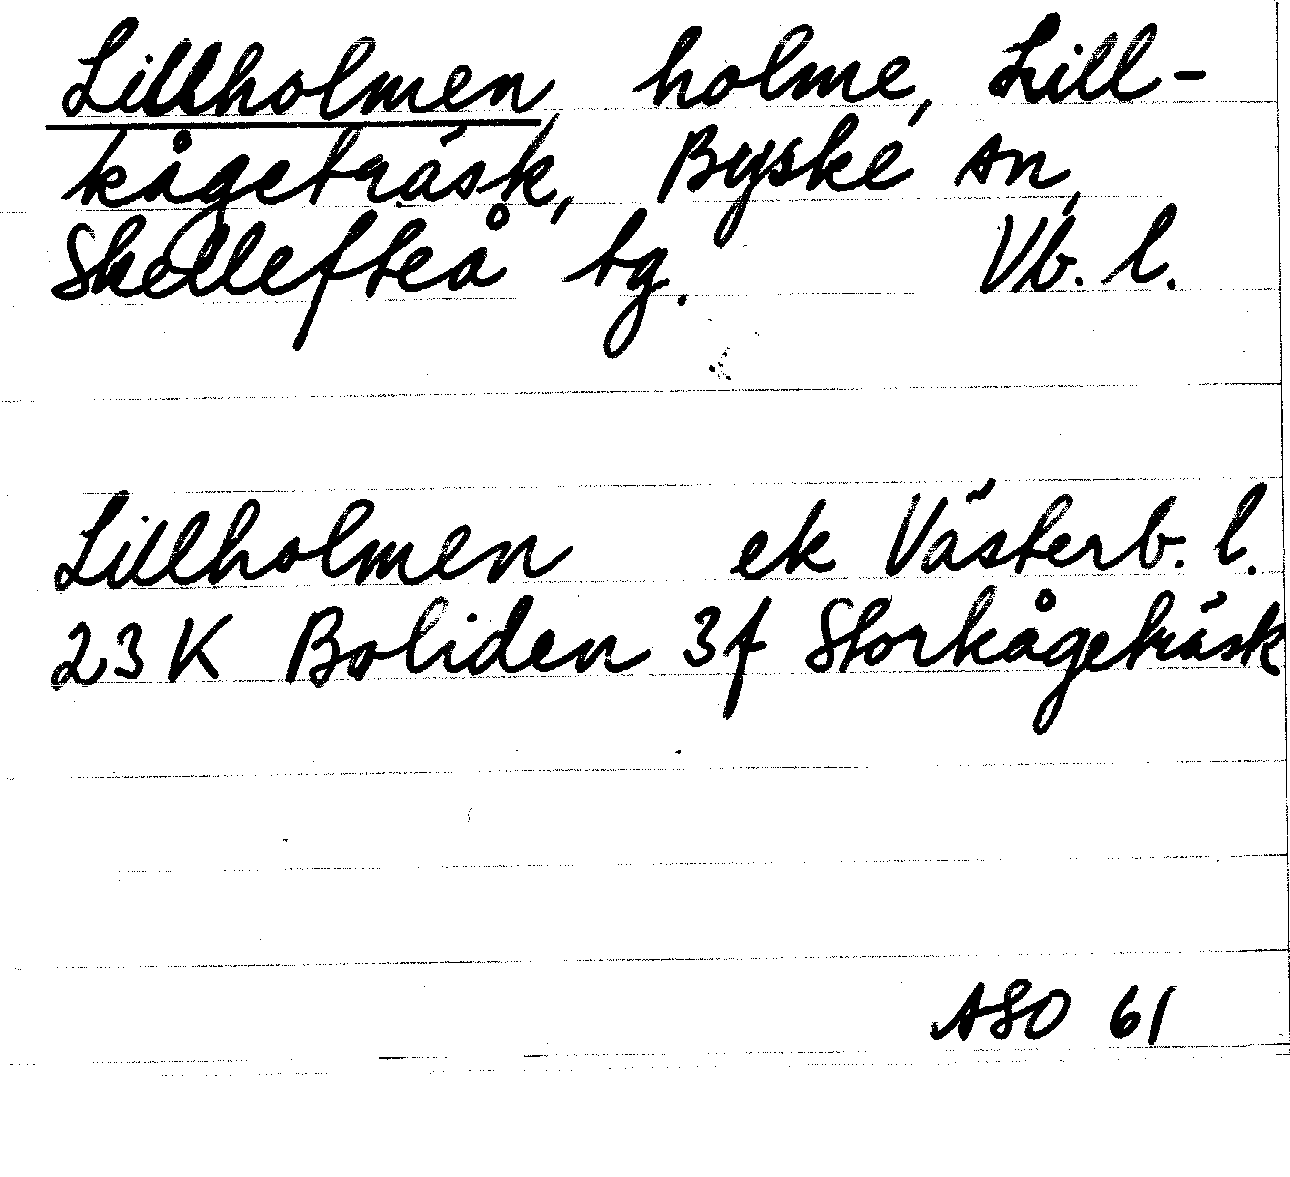 Lillholmen, holme, Lill-
kågeträsk, Byske sn,
Skellefteå tg. Vb. l.
Lillholmen ek Västerb. l.
23 K Boliden 3f Storkågeträsk
ASO 61